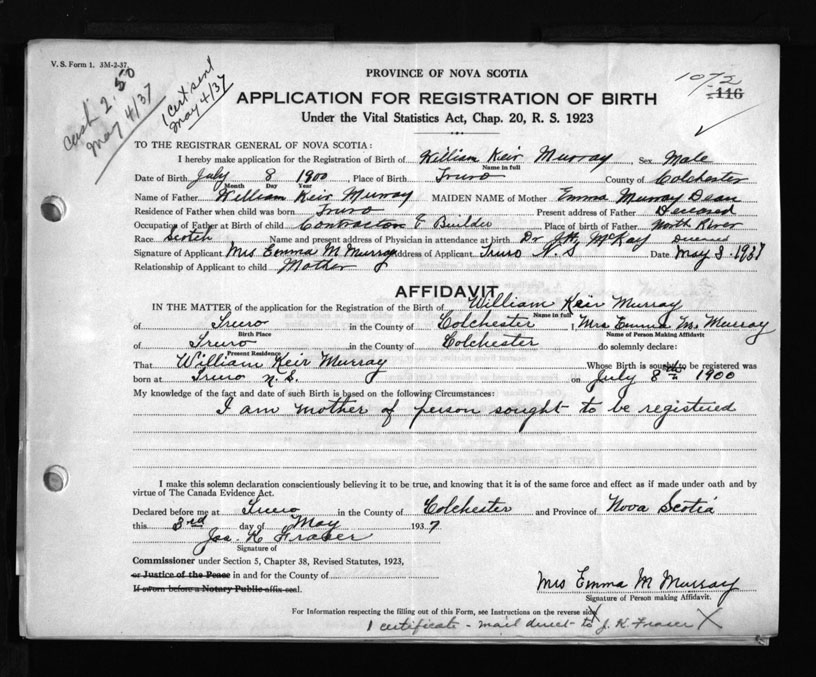 V. S. Form 1. 3M-2-37.
cash 2.50
May 4/37
1 cert sent
May 4/37
PROVINCE OF NOVA SCOTIA
1072
116
APPLICATION FOR REGISTRATION OF BIRTH
Under the Vital Statistics Act, Chap. 20, R. S. 1923
TO THE REGISTRAR GENERAL OF NOVA SCOTIA:
I hereby make application for the Registration of Birth of William Keir Murray, Sex Male
Name in full
Date of Birth July 8 1900, Place of Birth Truro County of Colchester
Month Day Year
Name of Father William Keir Murray MAIDEN NAME of Mother Emma Murray Dean
Residence of Father when child was born Truro Present address of Father Deceased
Occupation of Father at Birth of Child Contractor & Builder Place of birth of Father North River
Race Scotch Name and present address of Physician in attendance at birth Dr McKay Deceased
Signature of Applicant Mrs Emma M Murray Address of Applicant Truro N. S Date May 3 1937
Relationship of Applicant to child Mother
AFFIDAVIT
IN THE MATTER of the application for the Registration of the Birth of William Keir Murray
Name in full
of Truro in the County of Colchester I Mrs Emma M. Murray
Birth Place Name of Person Making Affidavit
of Truro in the County of Colchester do solemnly declare:
Present Residence
That William Keir Murray Whose Birth is sought to be registered was
born at Truro N. S. on July 8th 1900
My knowledge of the fact and date of such Birth is based on the following Circumstances:
I am mother of person sought to be registered
I make this solemn declaration conscientiously believing it to be true, and knowing that it is of the same force and effect as if made under oath and by
virtue of The Canada Evidence Act.
Declared before me at Truro in the County of Colchester and Province of Nova Scotia
this 3rd day of May 1937
Jas. K Fraser
Signature of
Commissioner under Section 5, Chapter 38, Revised Statutes, 1923,
or Justice of the Peace in and for the County of
If sworn before a Notary Public affix seal.
Mrs Emma M Murray
Signature of Person making Affidavit.
For Information respecting the filling out of this Form, see Instructions on the reverse side
1 certificate - mail direct to J. K Fraser X